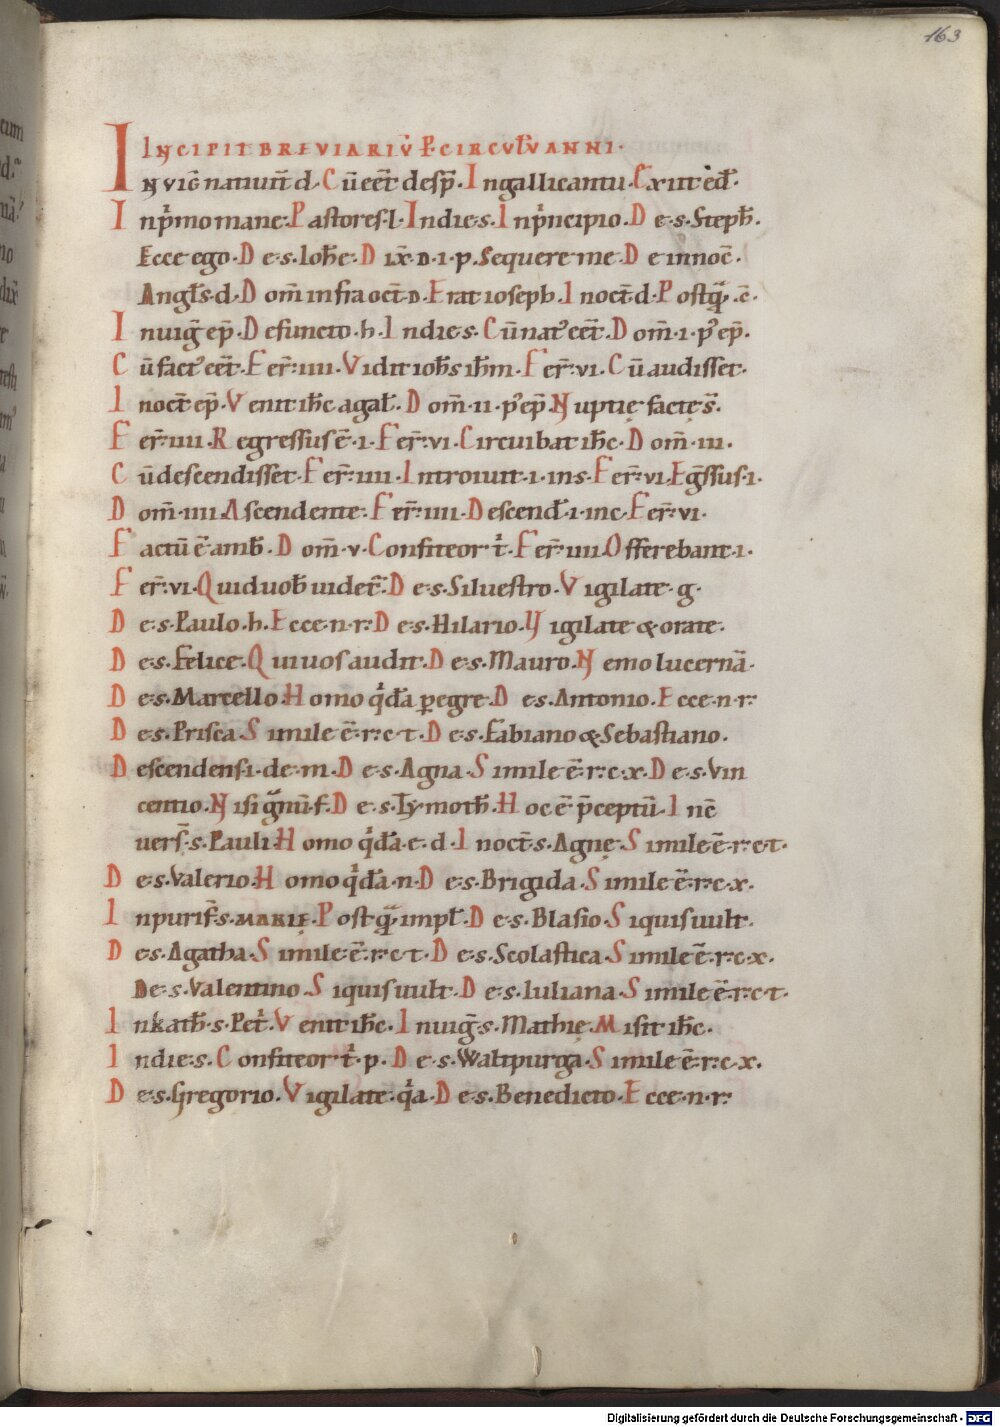 163
INCIPIT BREVIARIU̅ P̲ CIRCVLV̅ ANNI·
IN VIG̅ natiuit̅ d· Cu̅ eet̅ desp̅· In gallicantu· Exiit ed̅·
In pͥmo mane· Pastores·l· In die·s· In pͥncipio· De·s· Steph̅·
Ecce ego· De·s· Ioh̅e· D ix̅·D·i·p· Sequere me· De innoc̅·
Angl̅s·d· Dom̅ infra oct̅·D· Erat ioseph· In oct̅·d· Postq̅·c̅·
In uig̅ ep̅· Defuncto·h· In die·s· Cu̅ natꝰ eet̅· Dom̅·i·pꝰ ep̅·
Cu̅ factꝰ eet̅· Fer̅·iiii· Vidit ioh̅s ih̅m· Fer̅·vi· Cu̅ audisset·
In oct̅ ep̅· Venit ih̅c a gal̅· Dom̅·ii·pꝰ ep̅· Nuptię factę s̅·
Fer̅·iiii· Regressus e̅·i· Fer̅·vi· Circuibat ih̅c· Dom̅·iii·
Cu̅ descendisset· Fer̅·iiii· Introiuit·i·in·s· Fer̅·vi· Eg̅ssus·i·
Dom̅·iiii· Ascendente· Fer̅·iiii· Descend̅·i·inc· Fer̅·vi·
Factu̅ e̅ amb̅· Dom̅·v· Confiteor tͥ· Fer̅·iiii· Offerebant·i·
Fer̅·vi· Quid uob̅ uidet̅· De·s· Siluestro· Vigilate·g·
De·s· Paulo·h· Ecce·n·r· De·s· Hilario· Vigilate & orate·
De·s· Felice· Qui uos audit· De·s· Mauro· Nemo lucerna̅·
De·s· Marcello· Homo qͥda̅ p̲egre· De·s· Antonio· Ecce·n·r·
De·s· Prisca· Simile e̅·r·c·t· De·s· Fabiano & Sebastiano·
Descendens·i·de·m· De·s· Agna· Simile e̅·r·c·x· De·s· Vin
centio· Nisi g̅nu̅·f· De·s· Tymoth̅· Hoc e̅ p̅ceptu̅· In c̅
uers̅·s· Pauli· Homo qͥda̅·e·d· In oct̅·s· Agnę· Simile e̅·r·c·t·
De·s· Valerio· Homo qͥda̅·n· De·s· Brigida· Simile e̅·r·c·x·
In purif̅·s· MARIĘ· Postq̅ impl̅· De·s· Blasio· Si quis uult·
De·s· Agatha· Simile·e̅·r·c·t· De·s· Scolastica· Simile e̅·r·c·x·
De·s· Valentino· Si quis uult· De·s· Iuliana· Simile e̅·r·c·t·
In kath̅·s· Petͥ· Venit ih̅c· In uig̅·s· Mathię· Misit ih̅c·
In die·s· Confiteor tͥ·p· De·s· Waltpurga· Simile e̅·r·c·x·
De·s· Gregorio· Vigilate·qͥa· De·s· Benedicto· Ecce·n·r·
Digitalisierung gefördert durch die Deutsche Forschungsgemeinschaft - DFG